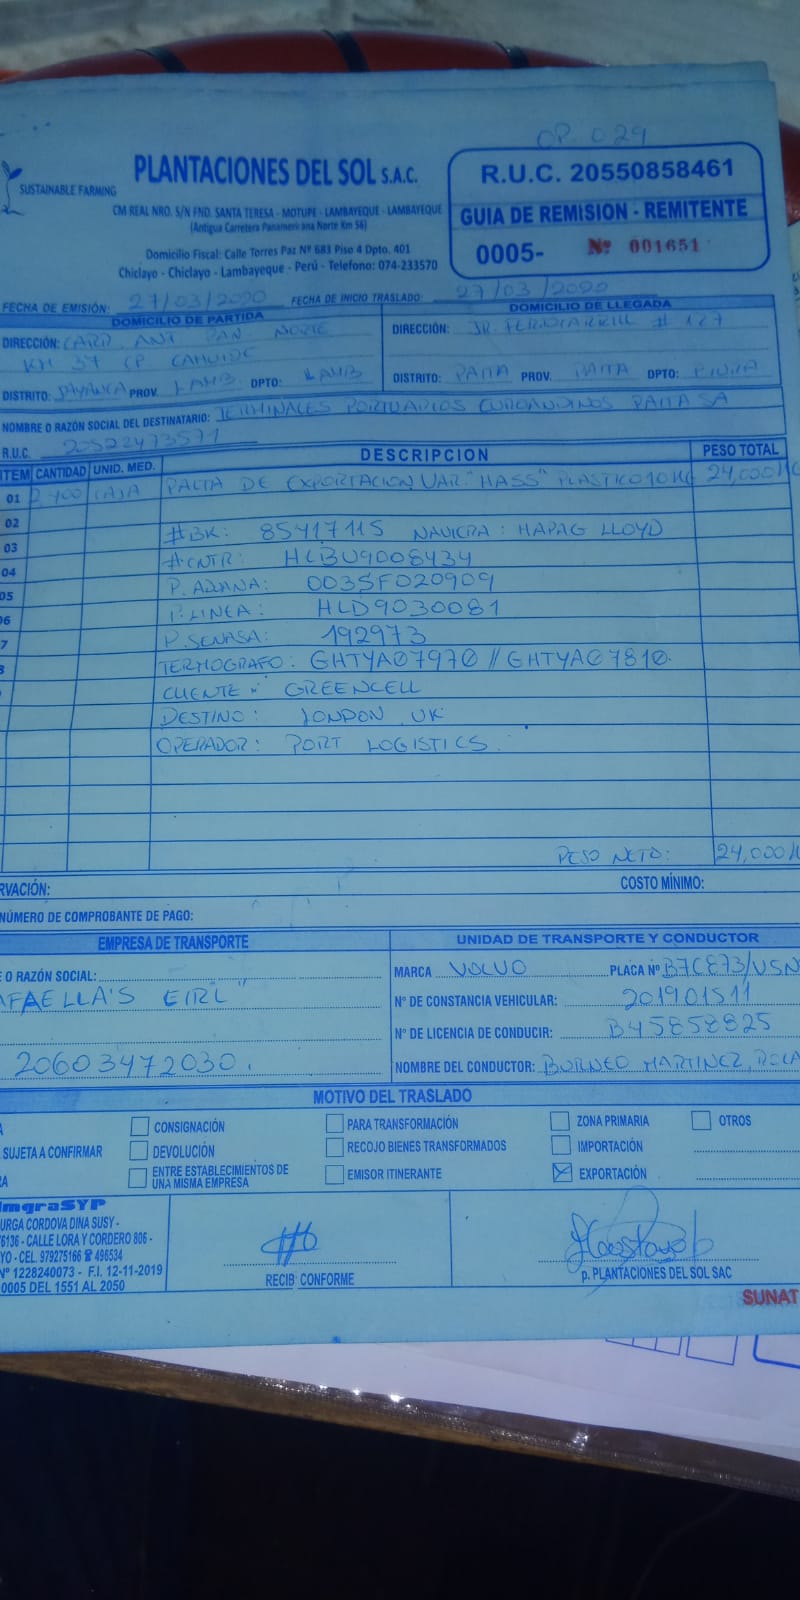 OP. 029
SUSTAINABLE FARMING
PLANTACIONES DEL SOL S.A.C.
CM REAL NRO. S/N FND. SANTA TERESA - MOTUPE - LAMBAYEQUE - LAMBAYEQUE
(Antigua Carretera Panamericana Norte Km 56)
Domicilio Fiscal: Calle Torres Paz Nº 683 Piso 4 Dpto. 401
Chiclayo - Chiclayo - Lambayeque - Perú - Telefono: 074-233570
R.U.C. 20550858461
GUIA DE REMISION - REMITENTE
0005- Nº 001651
FECHA DE EMISIÓN: 27/03/2020 FECHA DE INICIO TRASLADO: 27/03/2020
DOMICILIO DE PARTIDA
DIRECCIÓN: CARR. ANT PAN NORTE
KM 37 CP CAHUIDE
DISTRITO: JAYANCA PROV. LAMB. DPTO: LAMB
DOMICILIO DE LLEGADA
DIRECCIÓN: JR. FERROCARRIL # 127
DISTRITO: PAITA PROV. PAITA DPTO: PIURA
NOMBRE O RAZÓN SOCIAL DEL DESTINATARIO: TERMINALES PORTUARIOS EUROANDINOS PAITA SA
R.U.C. 20522473571
ITEM CANTIDAD UNID. MED. DESCRIPCION PESO TOTAL
01 2400 CAJA PALTA DE EXPORTACION VAR. "HASS" PLASTICO 10 KG 24,000
02
03 #BK: 85417115 NAVIERA: HAPAG LLOYD
04 #CNTR: HLBU9008434
05 P. ADUANA: 003SF020909
06 P. LINEA: HLD9030081
7 P. SENASA: 192973
8 TERMOGRAFO: GHTYA07970 // GHTYA07810.
CLIENTE: GREENCELL
DESTINO: LONDON, UK
OPERADOR: PORT LOGISTICS.
PESO NETO: 24,000
RVACIÓN: COSTO MÍNIMO:
NÚMERO DE COMPROBANTE DE PAGO:
EMPRESA DE TRANSPORTE
E O RAZÓN SOCIAL:
AFAELLA'S EIRL"
20603472030.
UNIDAD DE TRANSPORTE Y CONDUCTOR
MARCA VOLVO PLACA Nº B7C873/
Nº DE CONSTANCIA VEHICULAR: 201901511
Nº DE LICENCIA DE CONDUCIR: B45858825
NOMBRE DEL CONDUCTOR: BURNEO MARTINEZ,
MOTIVO DEL TRASLADO
A CONSIGNACIÓN PARA TRANSFORMACIÓN ZONA PRIMARIA OTROS
SUJETA A CONFIRMAR DEVOLUCIÓN RECOJO BIENES TRANSFORMADOS IMPORTACIÓN
RA ENTRE ESTABLECIMIENTOS DE UNA MISMA EMPRESA EMISOR ITINERANTE EXPORTACIÓN
ImgraSYP
URGA CORDOVA DINA SUSY -
76136 - CALLE LORA Y CORDERO 806 -
YO - CEL. 979275166 ☎ 496534
Nº 1228240073 - F.I. 12-11-2019
0005 DEL 1551 AL 2050
RECIBI CONFORME
p. PLANTACIONES DEL SOL SAC
SUNAT